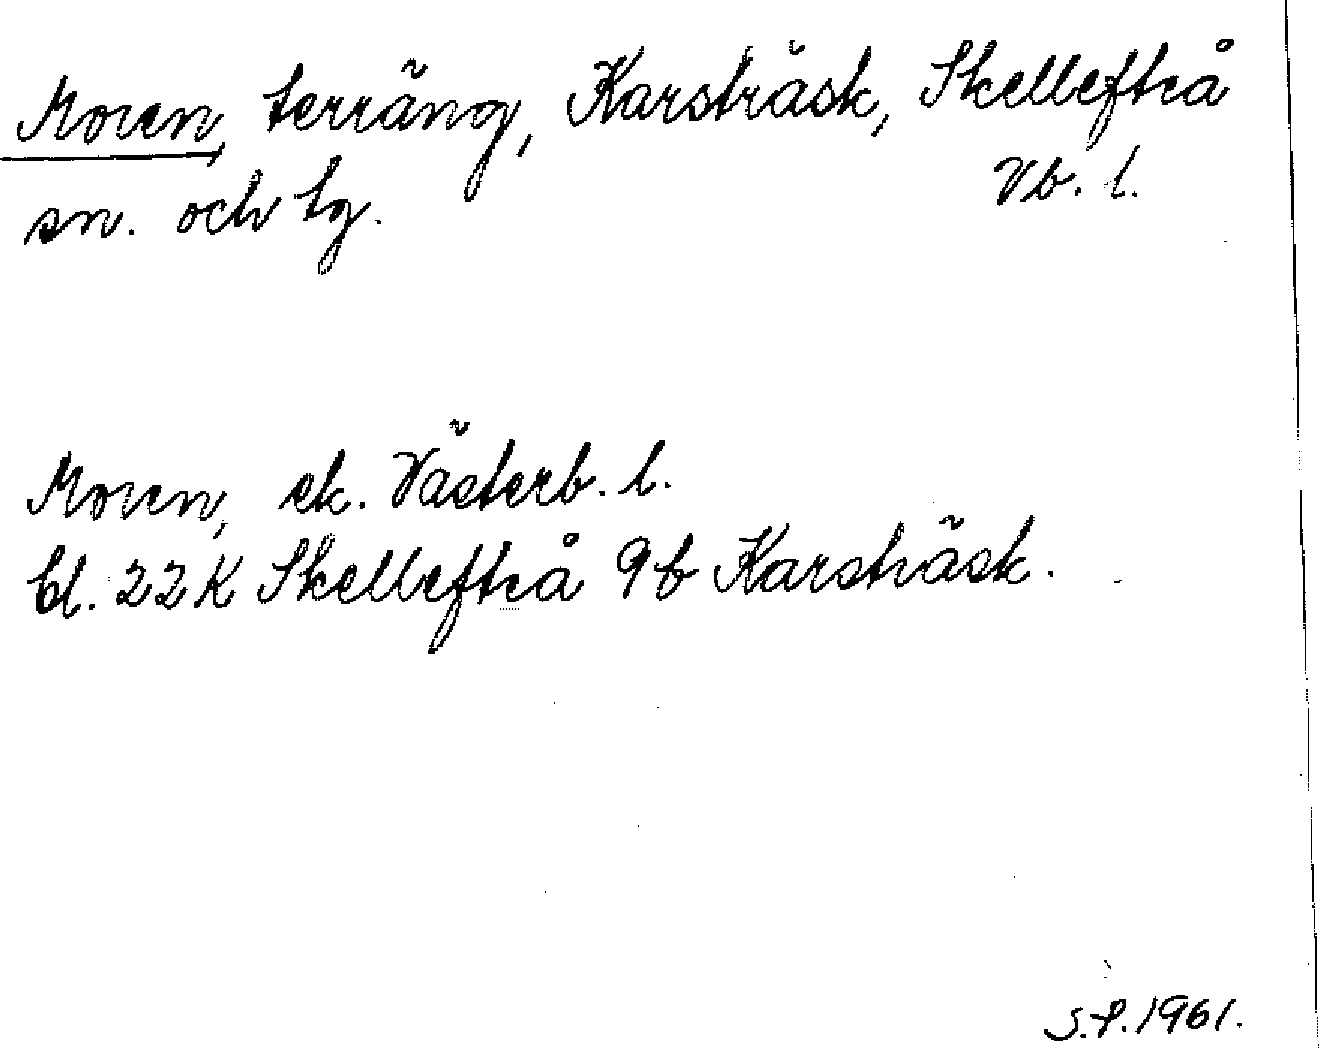 Moren, terräng, Karsträsk, Skellefteå
sn. och tg. Vb. l.
Moren, ek. Västerb. l.
bl. 22K Skellefteå 9b Karsträsk.
S.P. 1961.